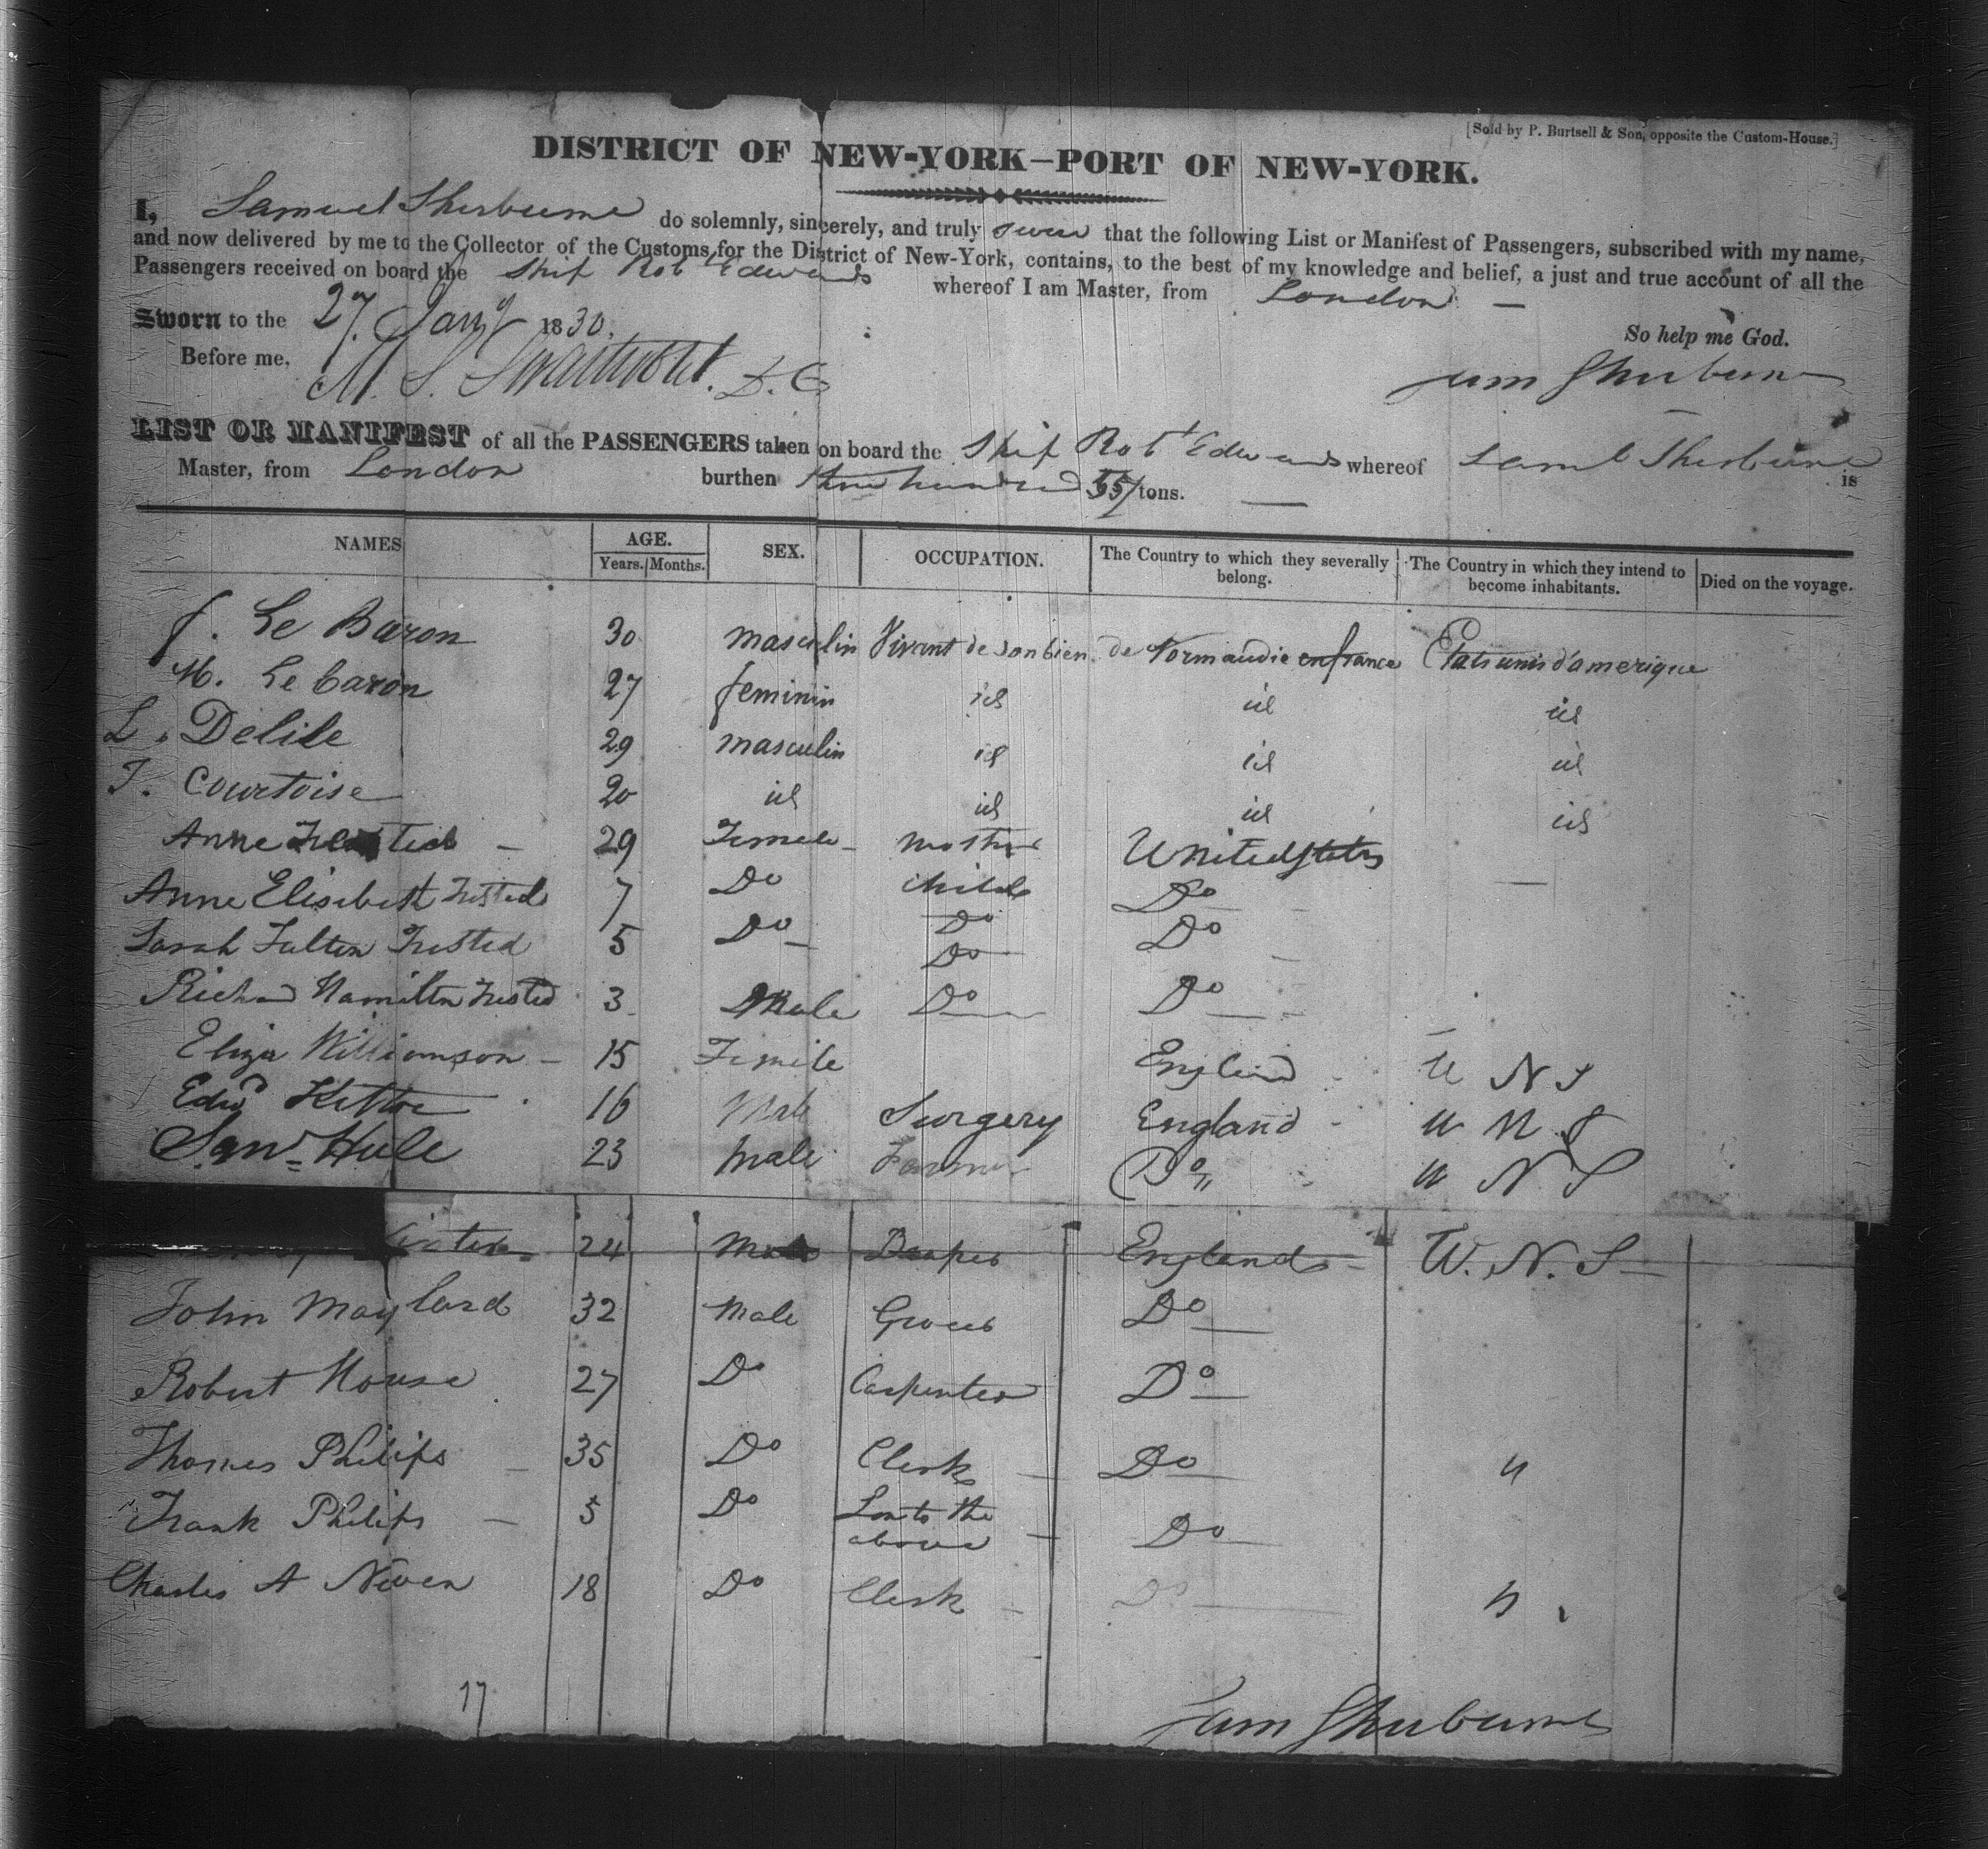 [Sold by P. Burtsell & Son, opposite the Custom-House.]
DISTRICT OF NEW-YORK—PORT OF NEW-YORK.
I, Samuel Sherburne do solemnly, sincerely, and truly swear that the following List or Manifest of Passengers, subscribed with my name,
and now delivered by me to the Collector of the Customs for the District of New-York, contains, to the best of my knowledge and belief, a just and true account of all the
Passengers received on board the Ship Robt Edwards whereof I am Master, from London
Sworn to the 27 Jany 1830. So help me God.
Before me, M. S. Swartwout. D. C Sam Sherburne
LIST OR MANIFEST of all the PASSENGERS taken on board the Ship Robt Edwards whereof Saml Sherburne is
Master, from London burthen three hundred 55/ tons.
NAMES AGE. Years. Months. SEX. OCCUPATION. The Country to which they severally belong. The Country in which they intend to become inhabitants. Died on the voyage.
f. Le Baron 30 masculin Vivant de son bien de Normandie en france Etats unis d'amerique
M. Le baron 27 feminin id id id
L. Delile 29 masculin id id id
T. Courtoise 20 id id id id
Anne 29 Female Mother United States —
Anne Elisebeth Trested 7 Do Child Do
Sarah Fulton Trested 5 Do Do Do
Do
Richard Hamilton Trested 3 Male Do Do
Eliza Williamson 15 Female England U N S
Edwd 16 Male Surgery England U N S
Hule 23 Male Farmer Do U N S
24 Male Draper England U. N. S
John Maylard 32 Male Grocer Do
Robert House 27 Do Carpenter Do
Thomas Philips 35 Do Clerk Do "
Frank Philips 5 Do Son to the above Do
Charles A Niven 18 Do Clerk Do "
17
Sam Sherburne